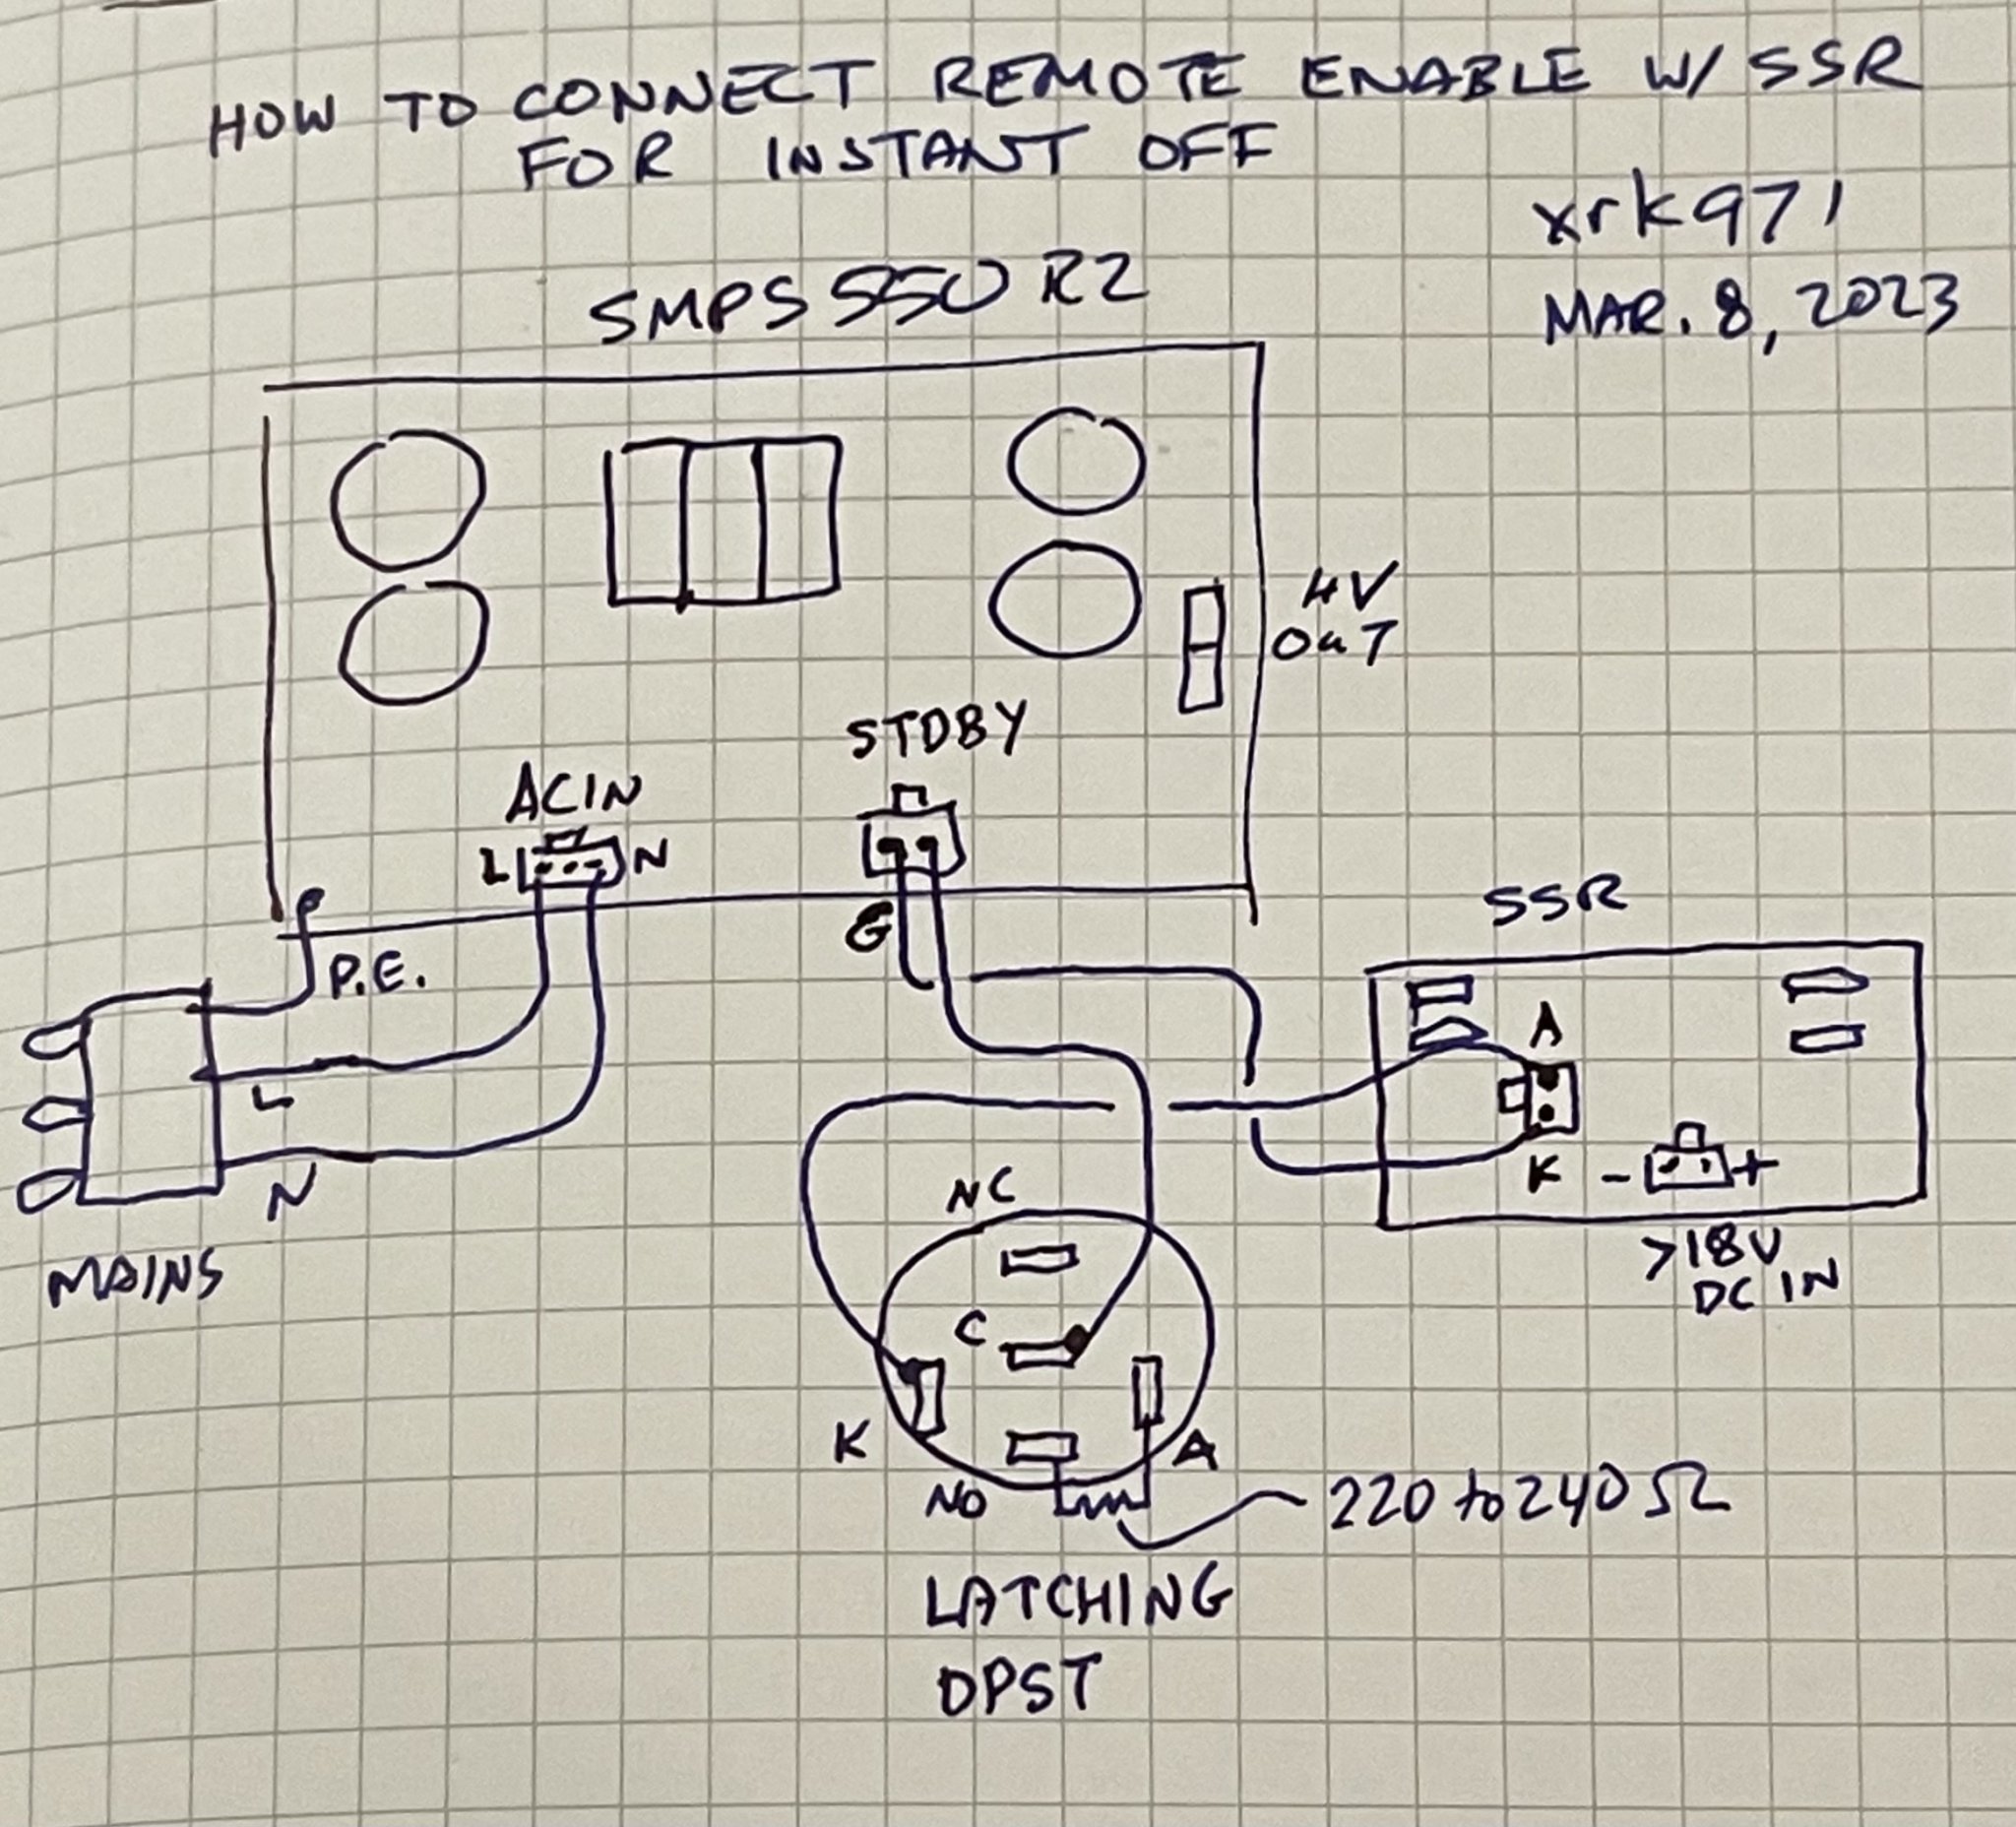 HOW TO CONNECT REMOTE ENABLE W/ SSR
FOR INSTANT OFF
xrk971
MAR. 8, 2023
SMPS 550 R2
4V
OUT
STDBY
ACIN
L
N
G
P.E.
L
N
MAINS
SSR
A
K
- +
>18V
DC IN
NC
C
K
A
NO
220 to 240 Ω
LATCHING
DPST